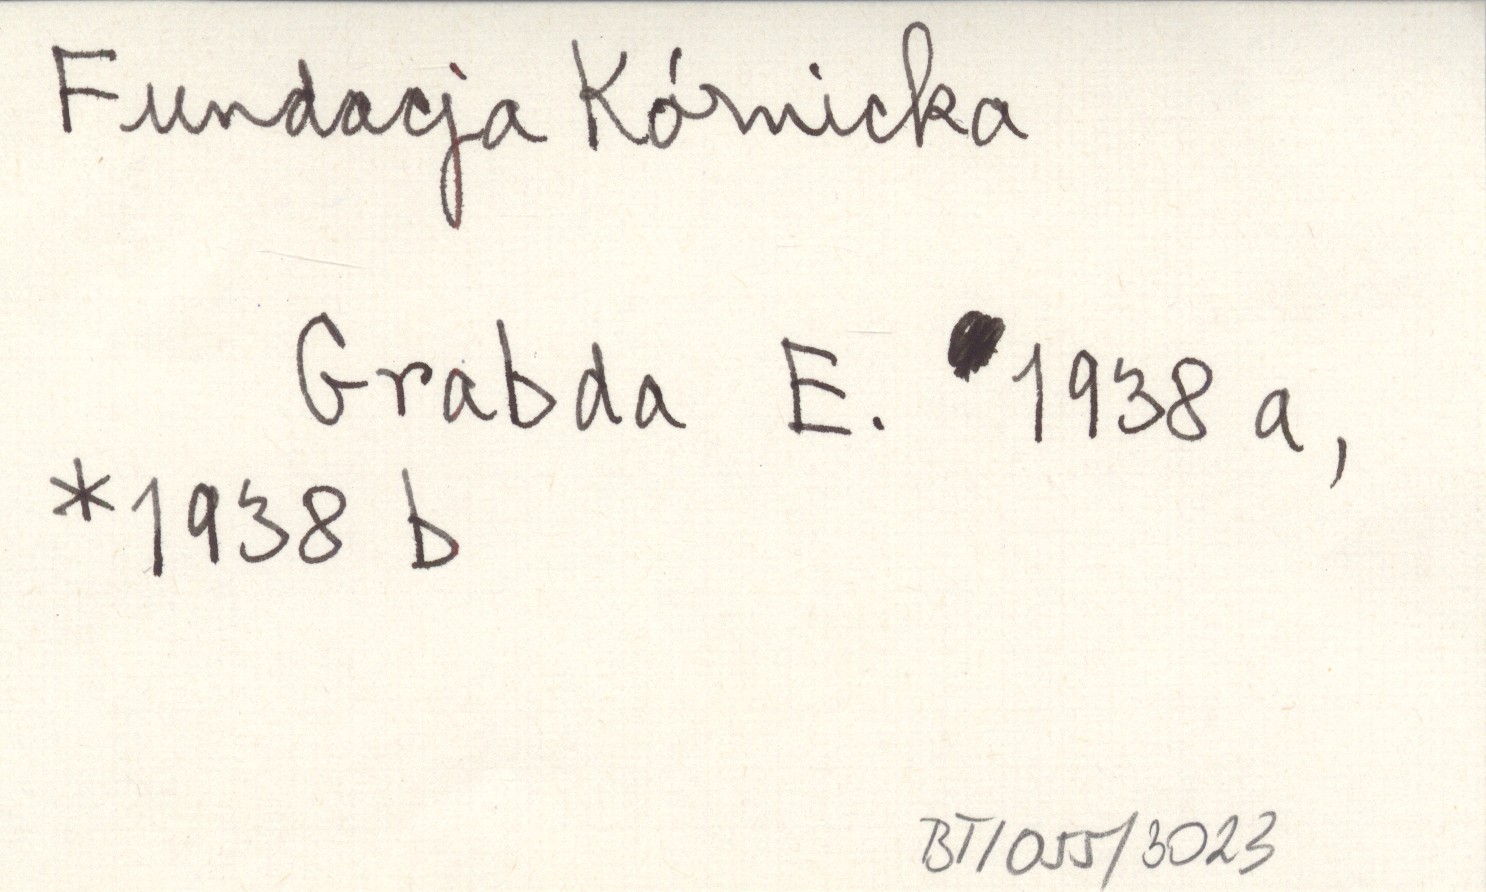 Fundacja Kórnicka
Grabda E. 1938 a,
*1938 b
BT/055/3023